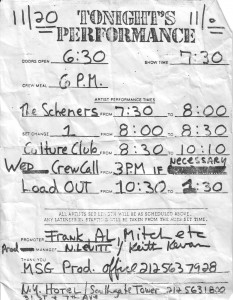 11/20 TONIGHT'S 11/
PERFORMANCE
DOORS OPEN 6:30 SHOW TIME 7:30
CREW MEAL 6 P.M.
ARTIST PERFORMANCE TIMES
The Scheners FROM 7:30 TO 8:00
SET CHANGE 1 FROM 8:00 TO 8:30
Culture Club FROM 8:30 TO 10:10
WED - Crew Call 3PM IF NECESSARY
Load OUT FROM 10:30 TO 1:30
ALL ARTIST SET LENGTH WILL BE AS SCHEDULED ABOVE.
ANY LATENESS BY ARTIST WILL BE TAKEN FROM THE ARTIST TIME.
PROMOTER Frank, AL, Mitch etc
Prod MANAGER N. LEVITT / Keith Kevan
THANK YOU
MSG Prod. office 212 563 7928
N.Y. HOTEL / Southgate Tower 212 563 1800
31 ST & 7th AVE